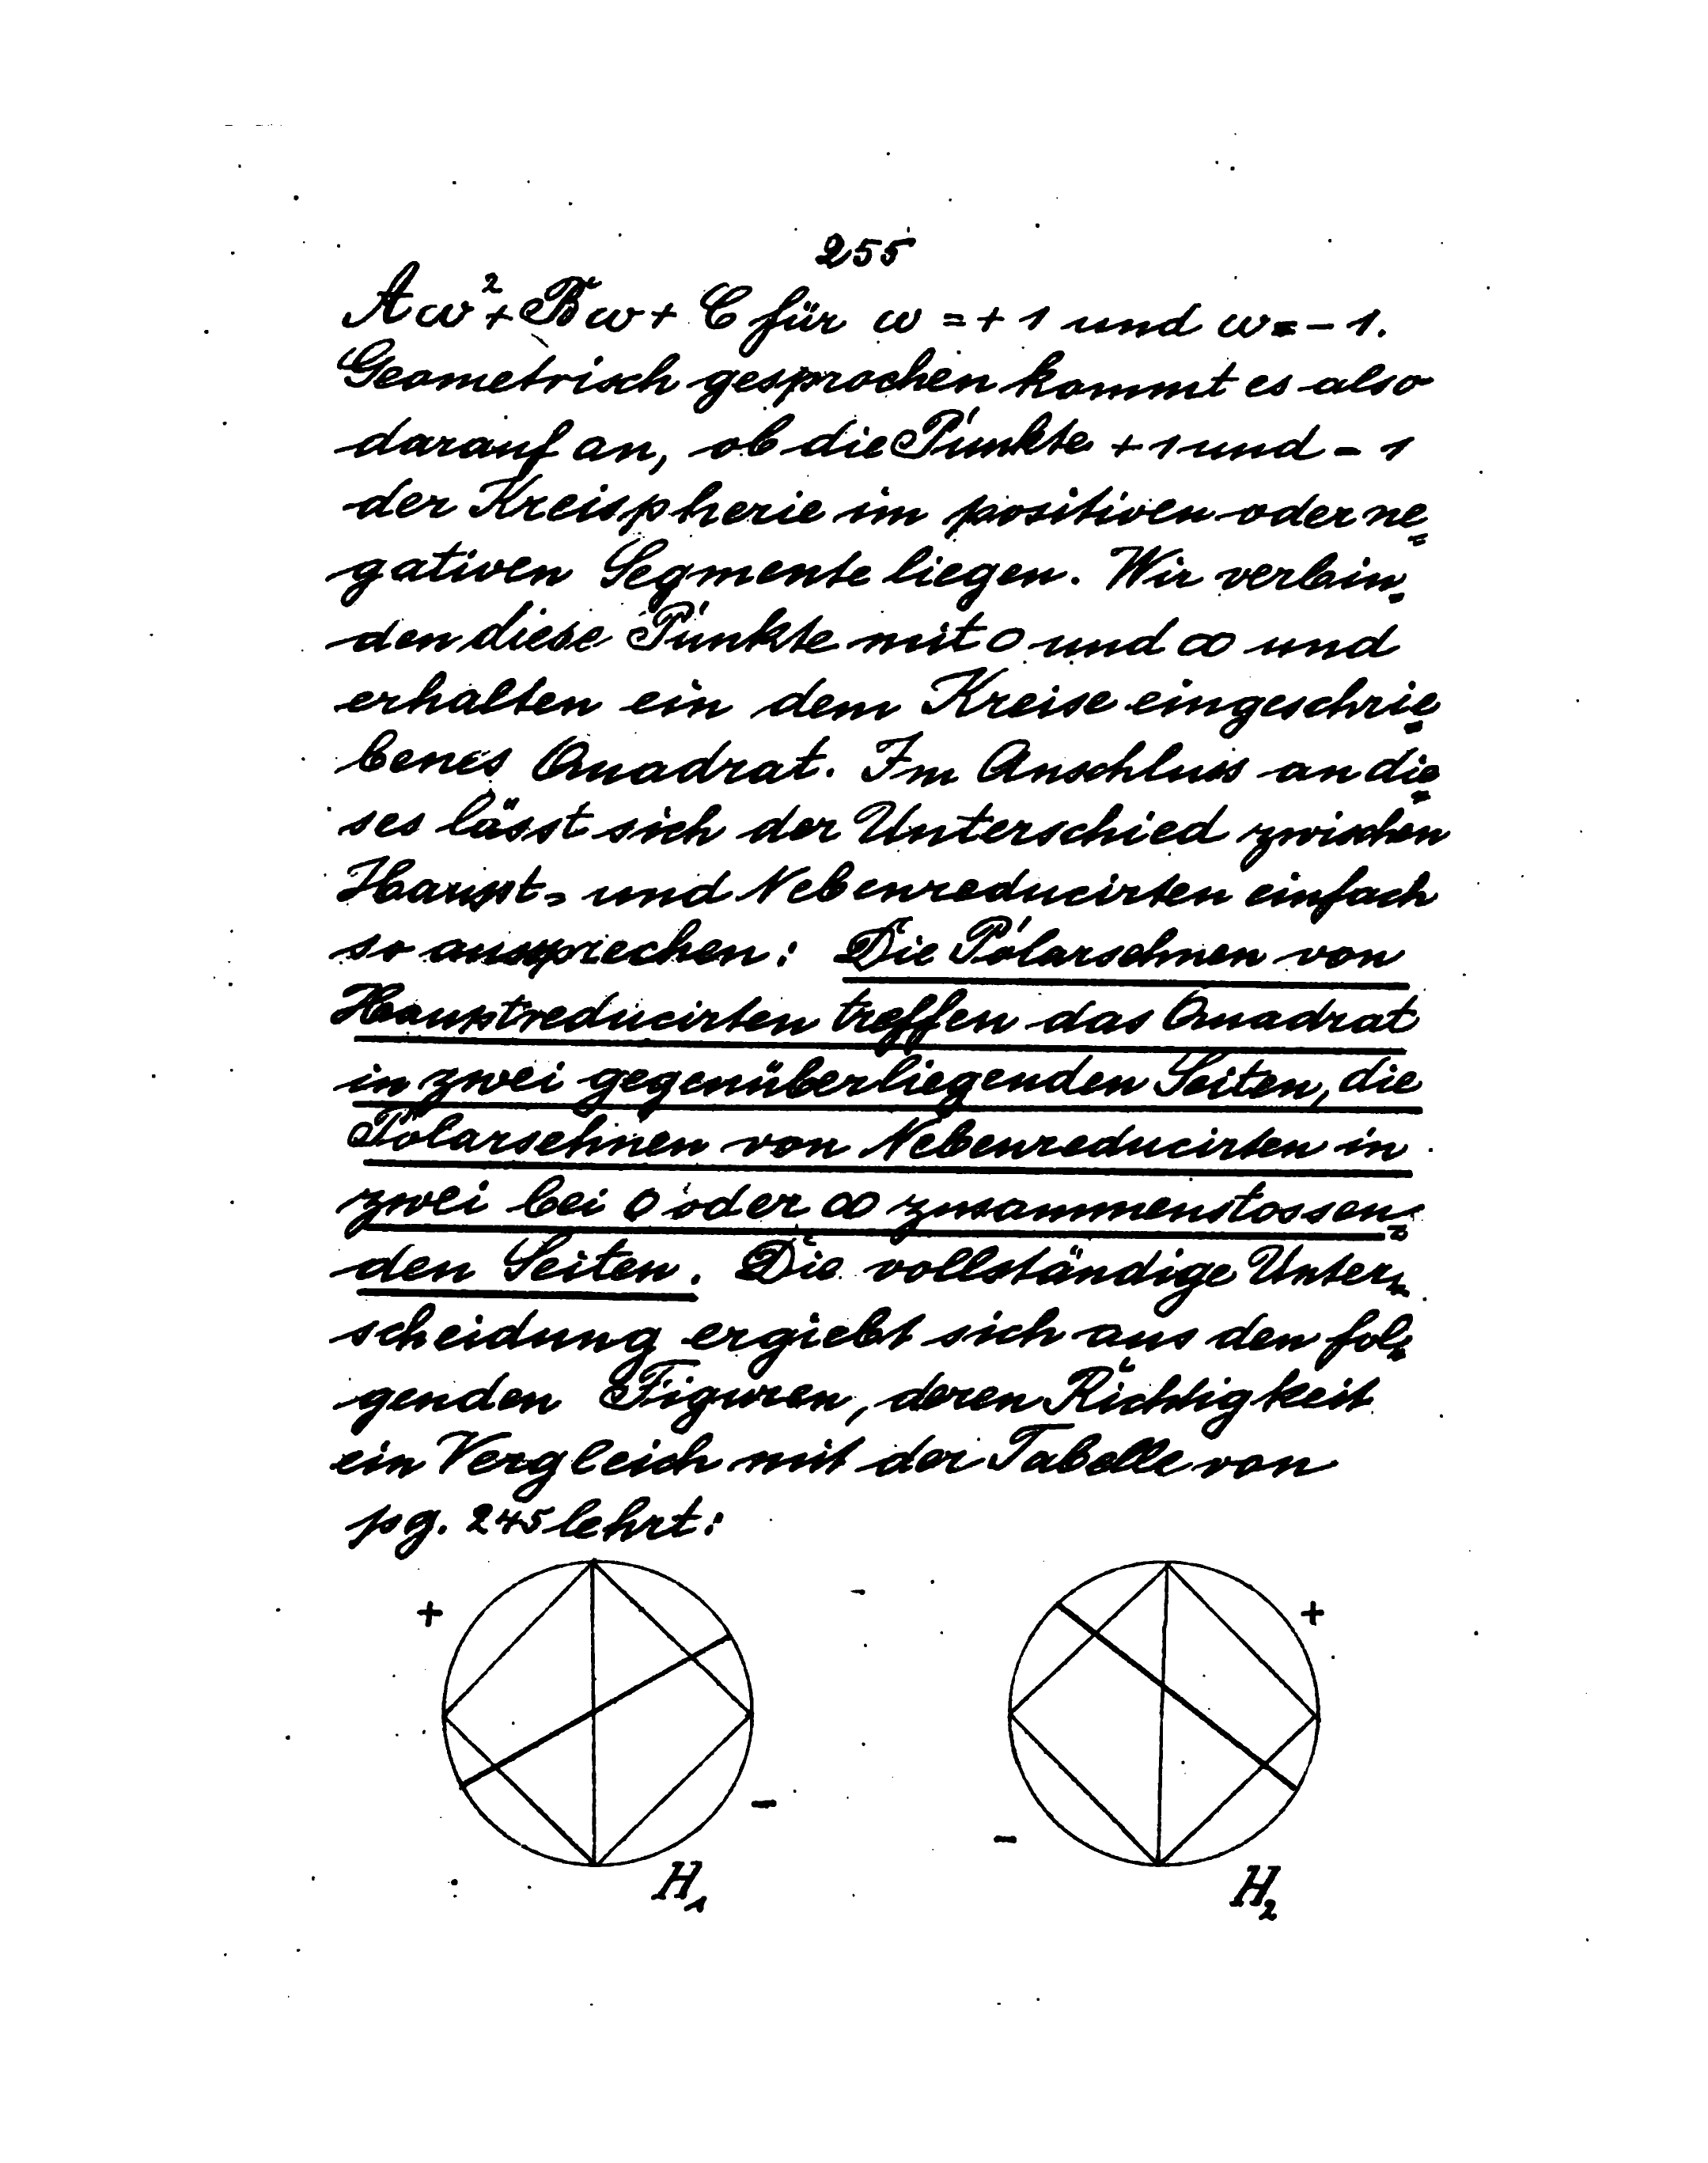 255
Aω²+Bω+C für ω=+1 und ω=-1.
Geometrisch gesprochen kommt es also
darauf an, ob die Punkte +1 und -1
der Kreispherie im positiven oder ne=
gativen Segmente liegen. Wir verbin=
den diese Punkte mit 0 und ∞ und
erhalten ein dem Kreise eingeschrie=
benes Quadrat. Im Anschluss an die=
ses lässt sich der Unterschied zwischen
Haupt= und Nebenreducirten einfach
so aussprechen: Die Polarsehnen von
Hauptreducirten treffen das Quadrat
in zwei gegenüberliegenden Seiten, die
Polarsehnen von Nebenreducirten in
zwei bei 0 oder ∞ zusammenstossen=
den Seiten. Die vollständige Unter=
scheidung ergiebt sich aus den fol=
genden Figuren, deren Richtigkeit
ein Vergleich mit der Tabelle von
pg. 245 lehrt:
+ +
- -
H₁ H₂